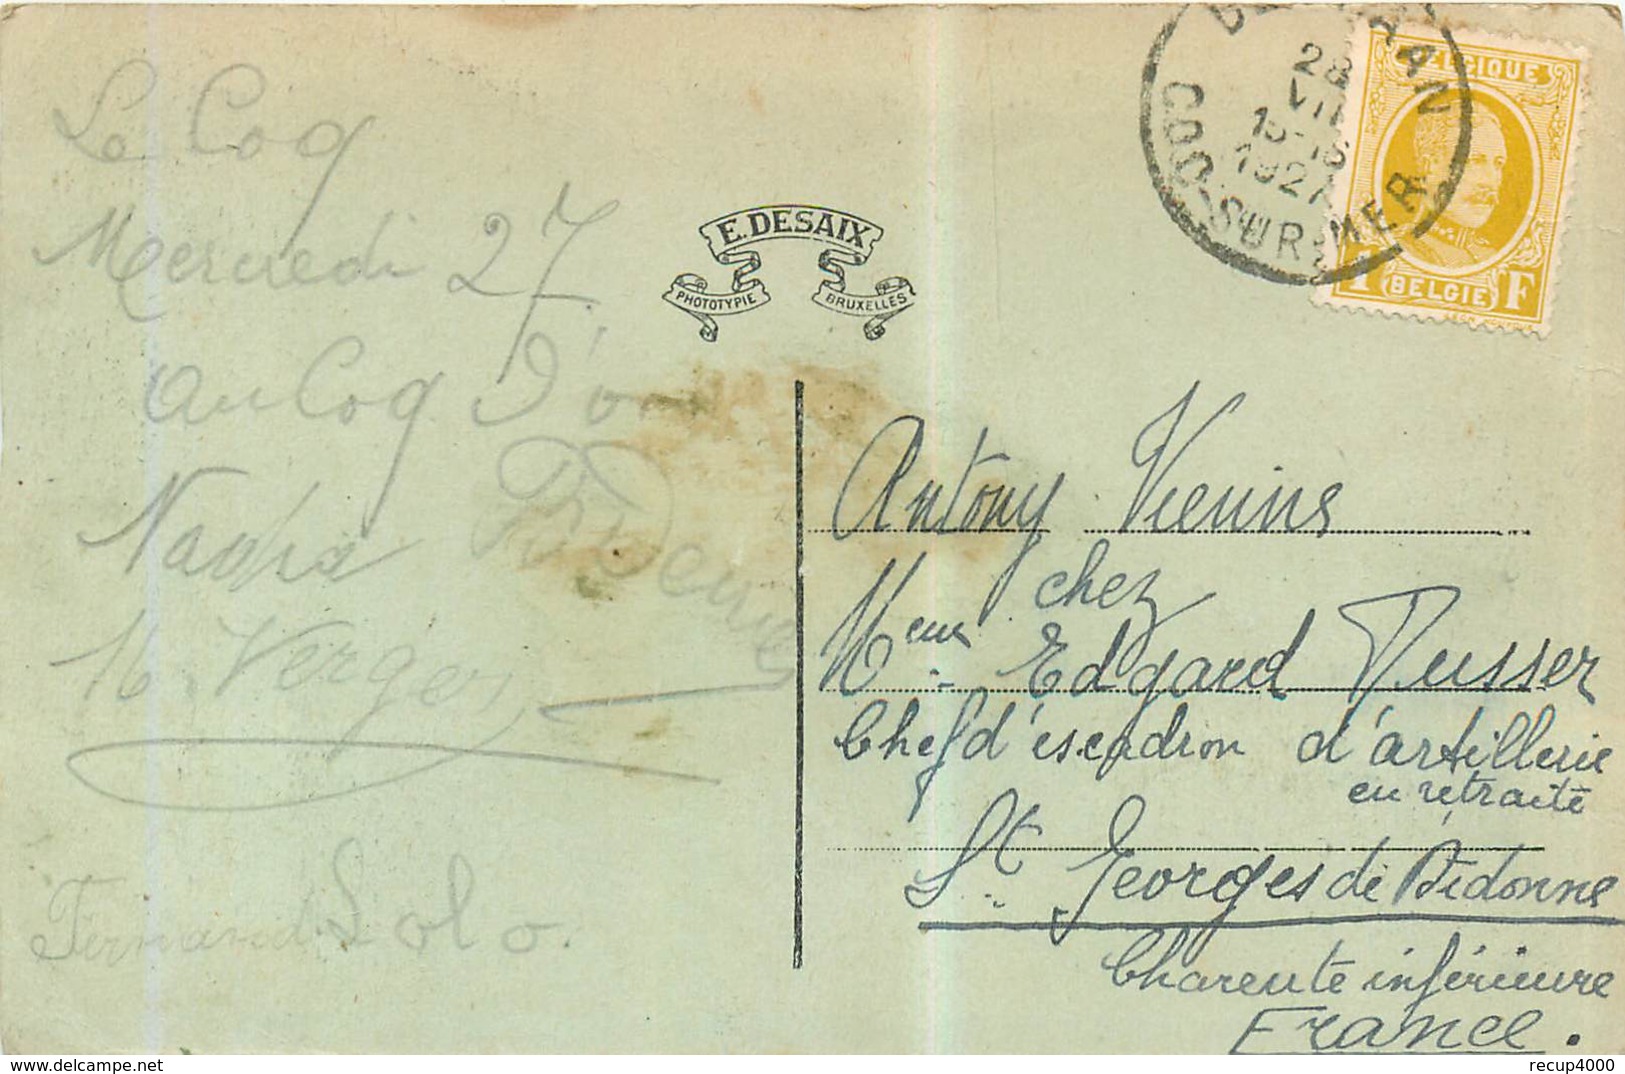 Le Coq
Mercredi 27
au Coq D'or
Nadia
M. Verges
Fernand Lolo.
E. DESAIX
PHOTOTYPIE
BRUXELLES
DE HAAN
28
VII
15-16
1927
COQ-SUR-MER
BELGIQUE
1 F
BELGIE
Antony Vienne
chez
Meur Edgard Dusser
Chef d'escadron d'artillerie
en retraite
St. Georges de Didonne
Charente inférieure
France.
recup4000